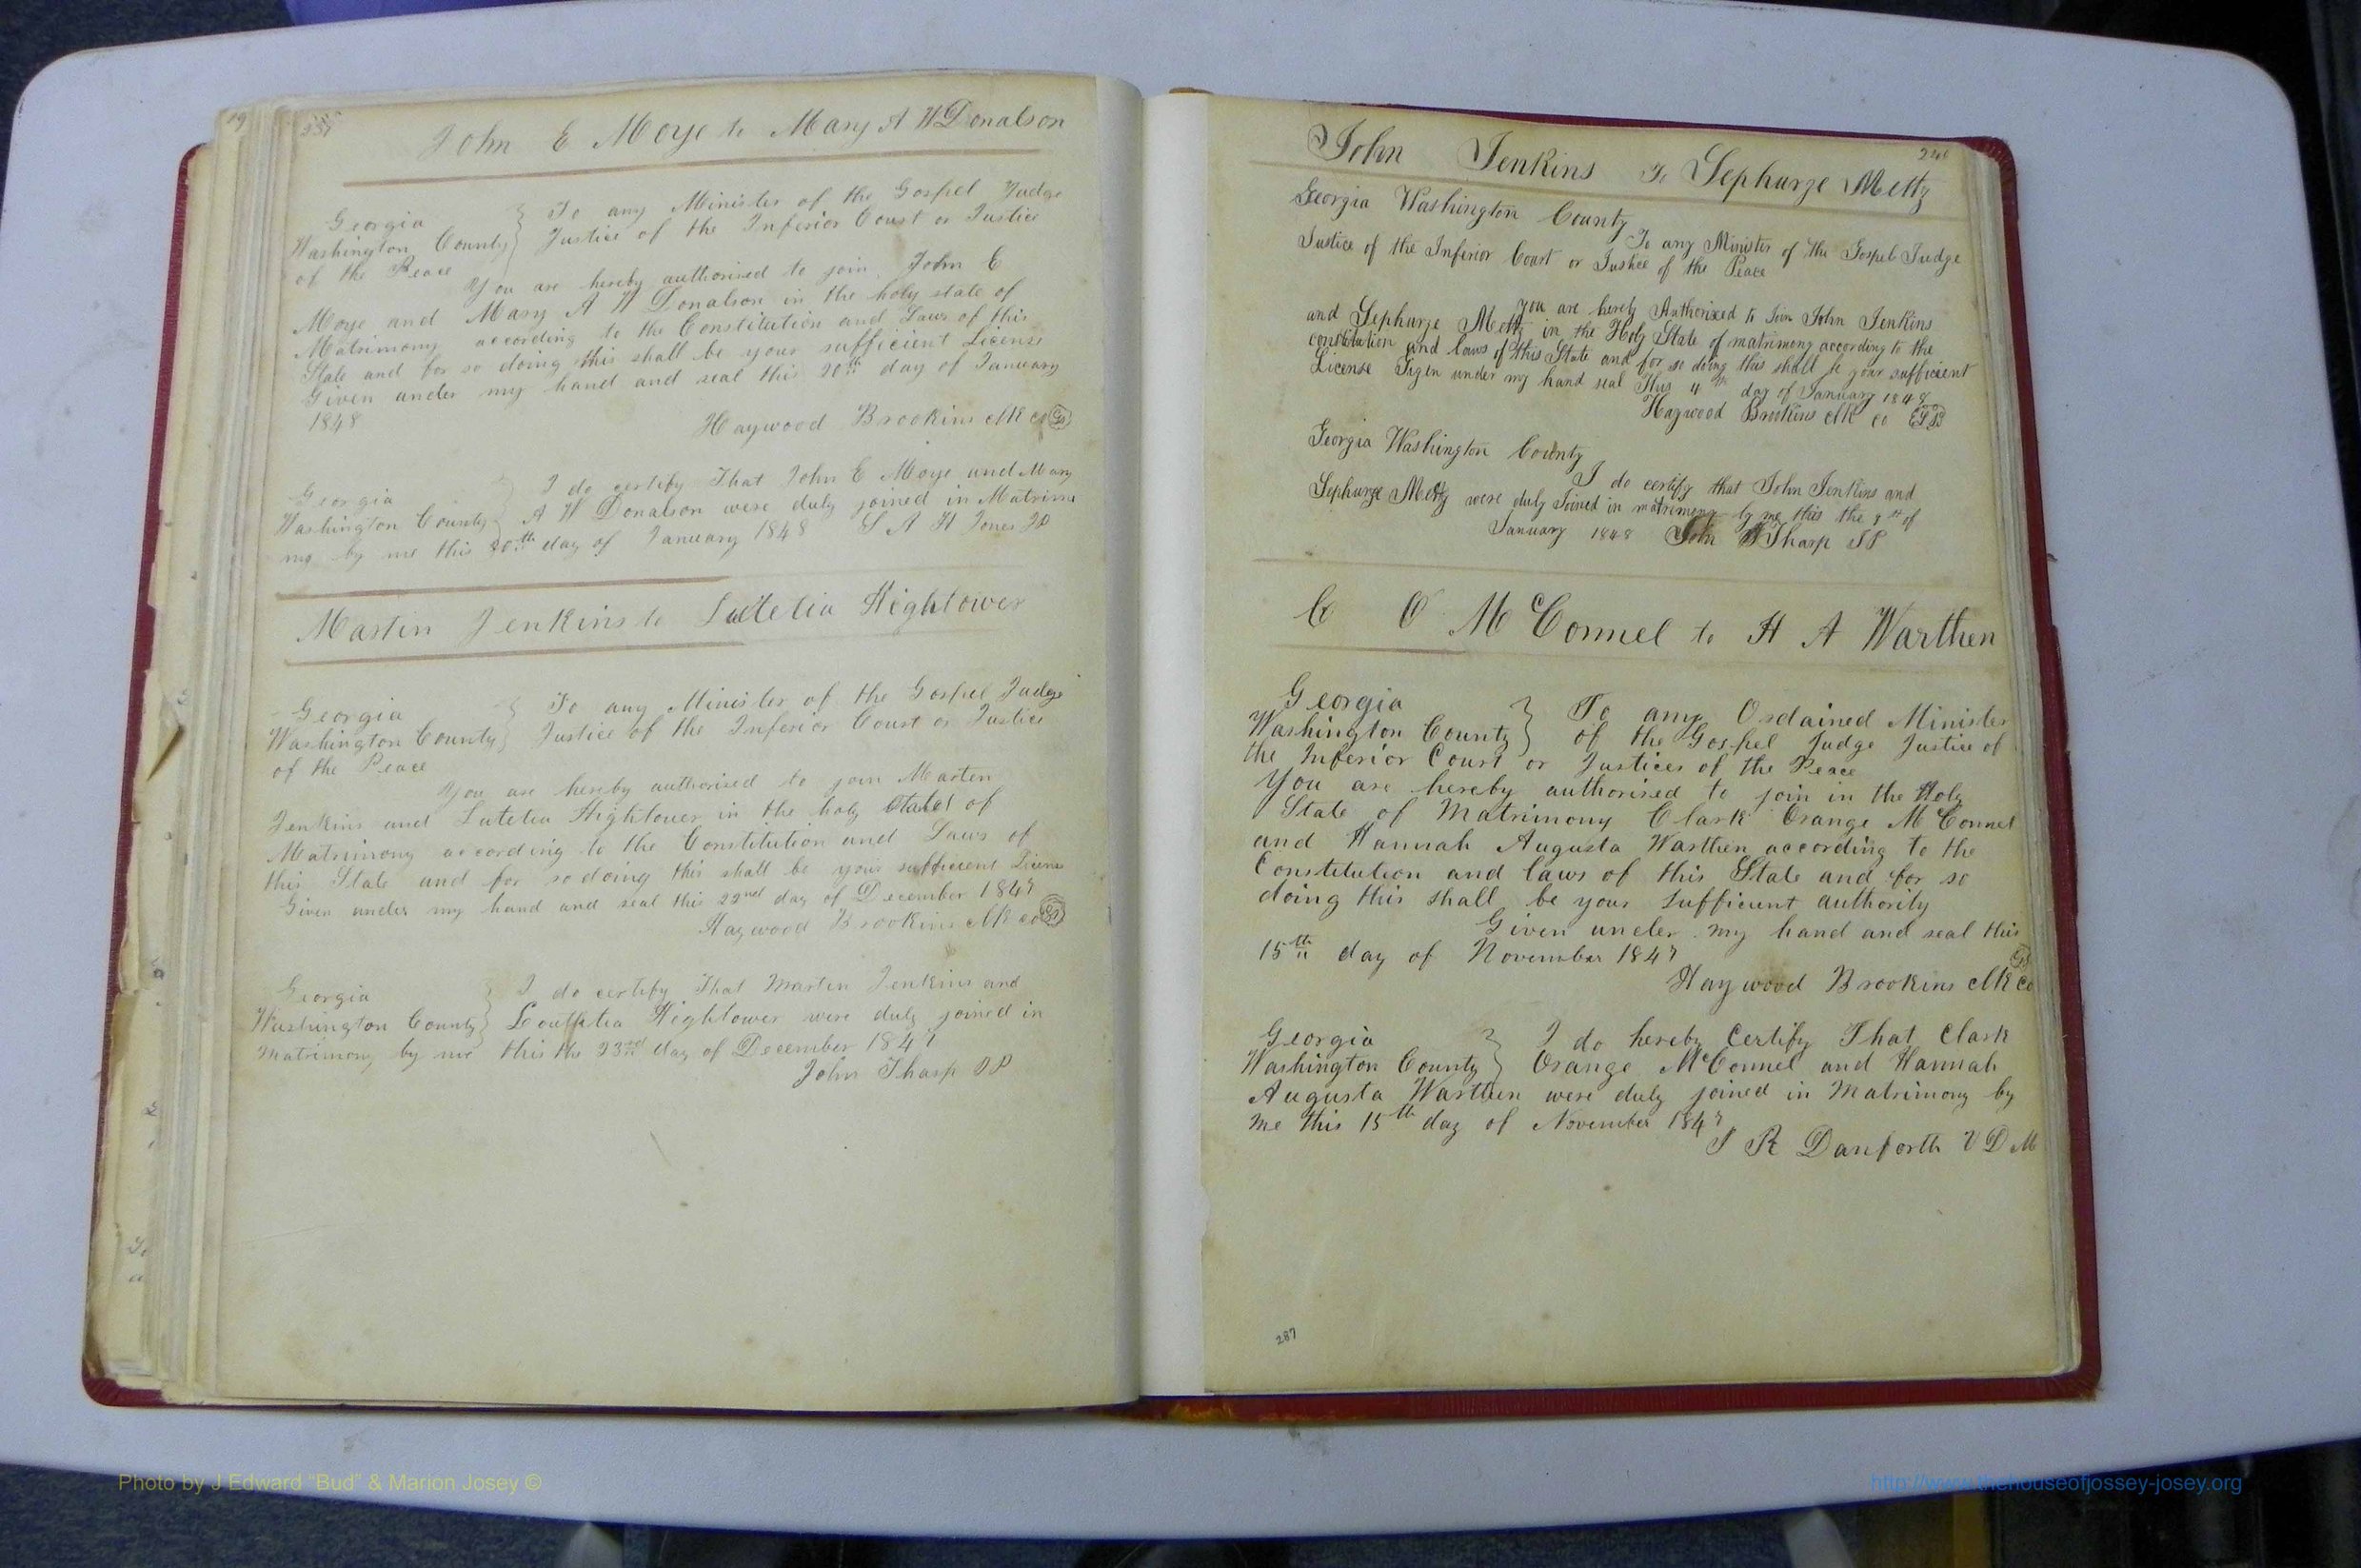 John E Moye to Mary A W Donalson
Georgia
Washington County
To any Minister of the Gospel Judge
Justice of the Inferior Court or Justice
of the Peace
You are hereby authorised to join John E
Moye and Mary A W Donalson in the holy state of
Matrimony according to the Constitution and Laws of this
State and for so doing this shall be your sufficient License
Given under my hand and seal this 20th day of January
1848
Haywood Brookins clk co
Georgia
Washington County
I do certify That John E Moye and Mary
A W Donalson were duly joined in Matrimo
ny by me this 30th day of January 1848 S A H Jones JP
Martin Jenkins to Lutetia Hightower
Georgia
Washington County
To any Minister of the Gospel Judge
Justice of the Inferior Court or Justice
of the Peace
You are hereby authorised to join Marten
Jenkins and Lutetia Hightower in the holy state of
Matrimony according to the Constitution and Laws of
this State and for so doing this shall be your sufficient License
Given under my hand and seal this 22nd day of December 1847
Haywood Brookins clk co
Georgia
Washington County
I do certify That Martin Jenkins and
Hightower were duly joined in
Matrimony by me this the 23rd day of December 1847
John Tharp JP
John Jenkins To Sephurze Mettz
Georgia Washington County
To any Minister of the Gospel Judge
Justice of the Inferior Court or Justice of the Peace
You are herely Authorised to Join John Jenkins
and Sephurze Mettz in the Holy State of matrimony according to the
constitution and laws of this State and for so doing this shall be your sufficient
License Given under my hand seal This 4th day of January 1848
Haywood Brookins clk co
Georgia Washington County
I do certify that John Jenkins and
Sephurze Mettz were duly Joined in matrimony by me this the 9th of
January 1848 John Tharp JP
C O McConnel to H A Warthen
Georgia
Washington County
To any Ordained Minister
of the Gospel Judge Justice of
the Inferior Court or Justices of the Peace
You are hereby authorised to join in the Holy
State of Matrimony Clark Orange McConnel
and Hannah Augusta Warthen according to the
Constitution and laws of this State and for so
doing this shall be your sufficient authority
Given under my hand and seal this
15th day of November 1847
Haywood Brookins clk co
Georgia
Washington County
I do hereby Certify That Clark
Orange McConnel and Hannah
Augusta Warthen were duly joined in Matrimony by
me this 15th day of November 1847
J R Danforth V D M
287
Photo by J Edward “Bud” & Marion Josey ©
http://www.thehouseofjossey-josey.org